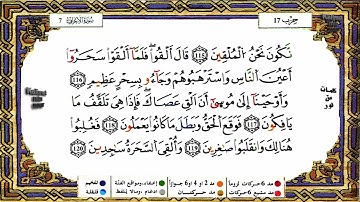 حِزب ١٧
سُورَةُ الأَعْرَافِ 7
نَكُونَ نَحْنُ الْمُلْقِينَ ﴿115﴾ قَالَ أَلْقُوا فَلَمَّا أَلْقَوْا سَحَرُوا
أَعْيُنَ النَّاسِ وَاسْتَرْهَبُوهُمْ وَجَاءُو بِسِحْرٍ عَظِيمٍ ﴿116﴾
وَأَوْحَيْنَا إِلَى مُوسَى أَنْ أَلْقِ عَصَاكَ فَإِذَا هِيَ تَلْقَفُ مَا
يَأْفِكُونَ ﴿117﴾ فَوَقَعَ الْحَقُّ وَبَطَلَ مَا كَانُوا يَعْمَلُونَ ﴿118﴾ فَغُلِبُوا
هُنَالِكَ وَانْقَلَبُوا صَاغِرِينَ ﴿119﴾ وَأُلْقِيَ السَّحَرَةُ سَاجِدِينَ ﴿120﴾
كلمات من نور
مد 6 حركات لزوماً مد 2 أو 4 أو 6 جوازاً إخفاء، ومواقع الغنّة تفخيم
مد مشبع 6 حركات مد حركتان إدغام، وما لا يُلفظ قلقلة